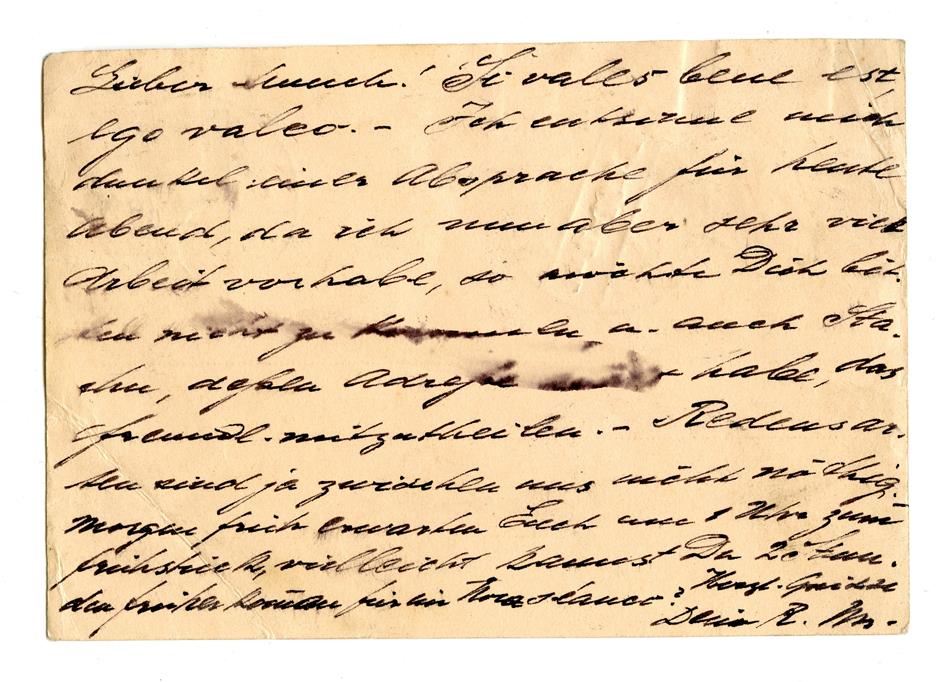 Lieber Munch! Si vales bene est,
ego valeo. – Ich entsinne mich
dunkel einer Absprache für heute
Abend, da ich nun aber sehr viel
Arbeit vorhabe, so möchte Dich bit-
ten nicht zu kommen, u. auch Sta-
chu, deßen Adreße habe, das
freundl. mitzutheilen. – Redensar-
ten sind ja zwischen uns nicht nöthig.
Morgen früh erwarten Euch um 1 Uhr zum
Frühstück, vielleicht kannst Du 2 Stun-
den früher kommen für ein ? Herzl. Grüße
Dein R.